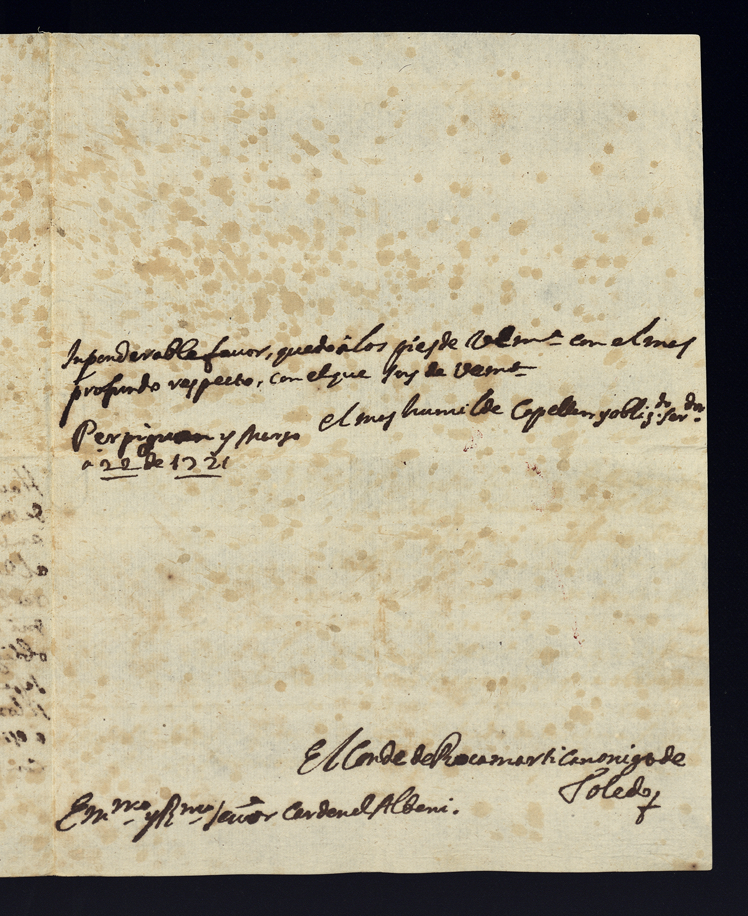 Inponderable favor, quedo à los pies de VEm.ª con el mas
profundo respecto, con el que soy de VEm.ª
el mas humilde Capellan y oblig.do ser.dor
Perpiguan y Marzo
a 22 de 1721
El Conde de Rocamarti Canonigo de
Toledo
Em.mo y R.mo señor Cardenal Albani.